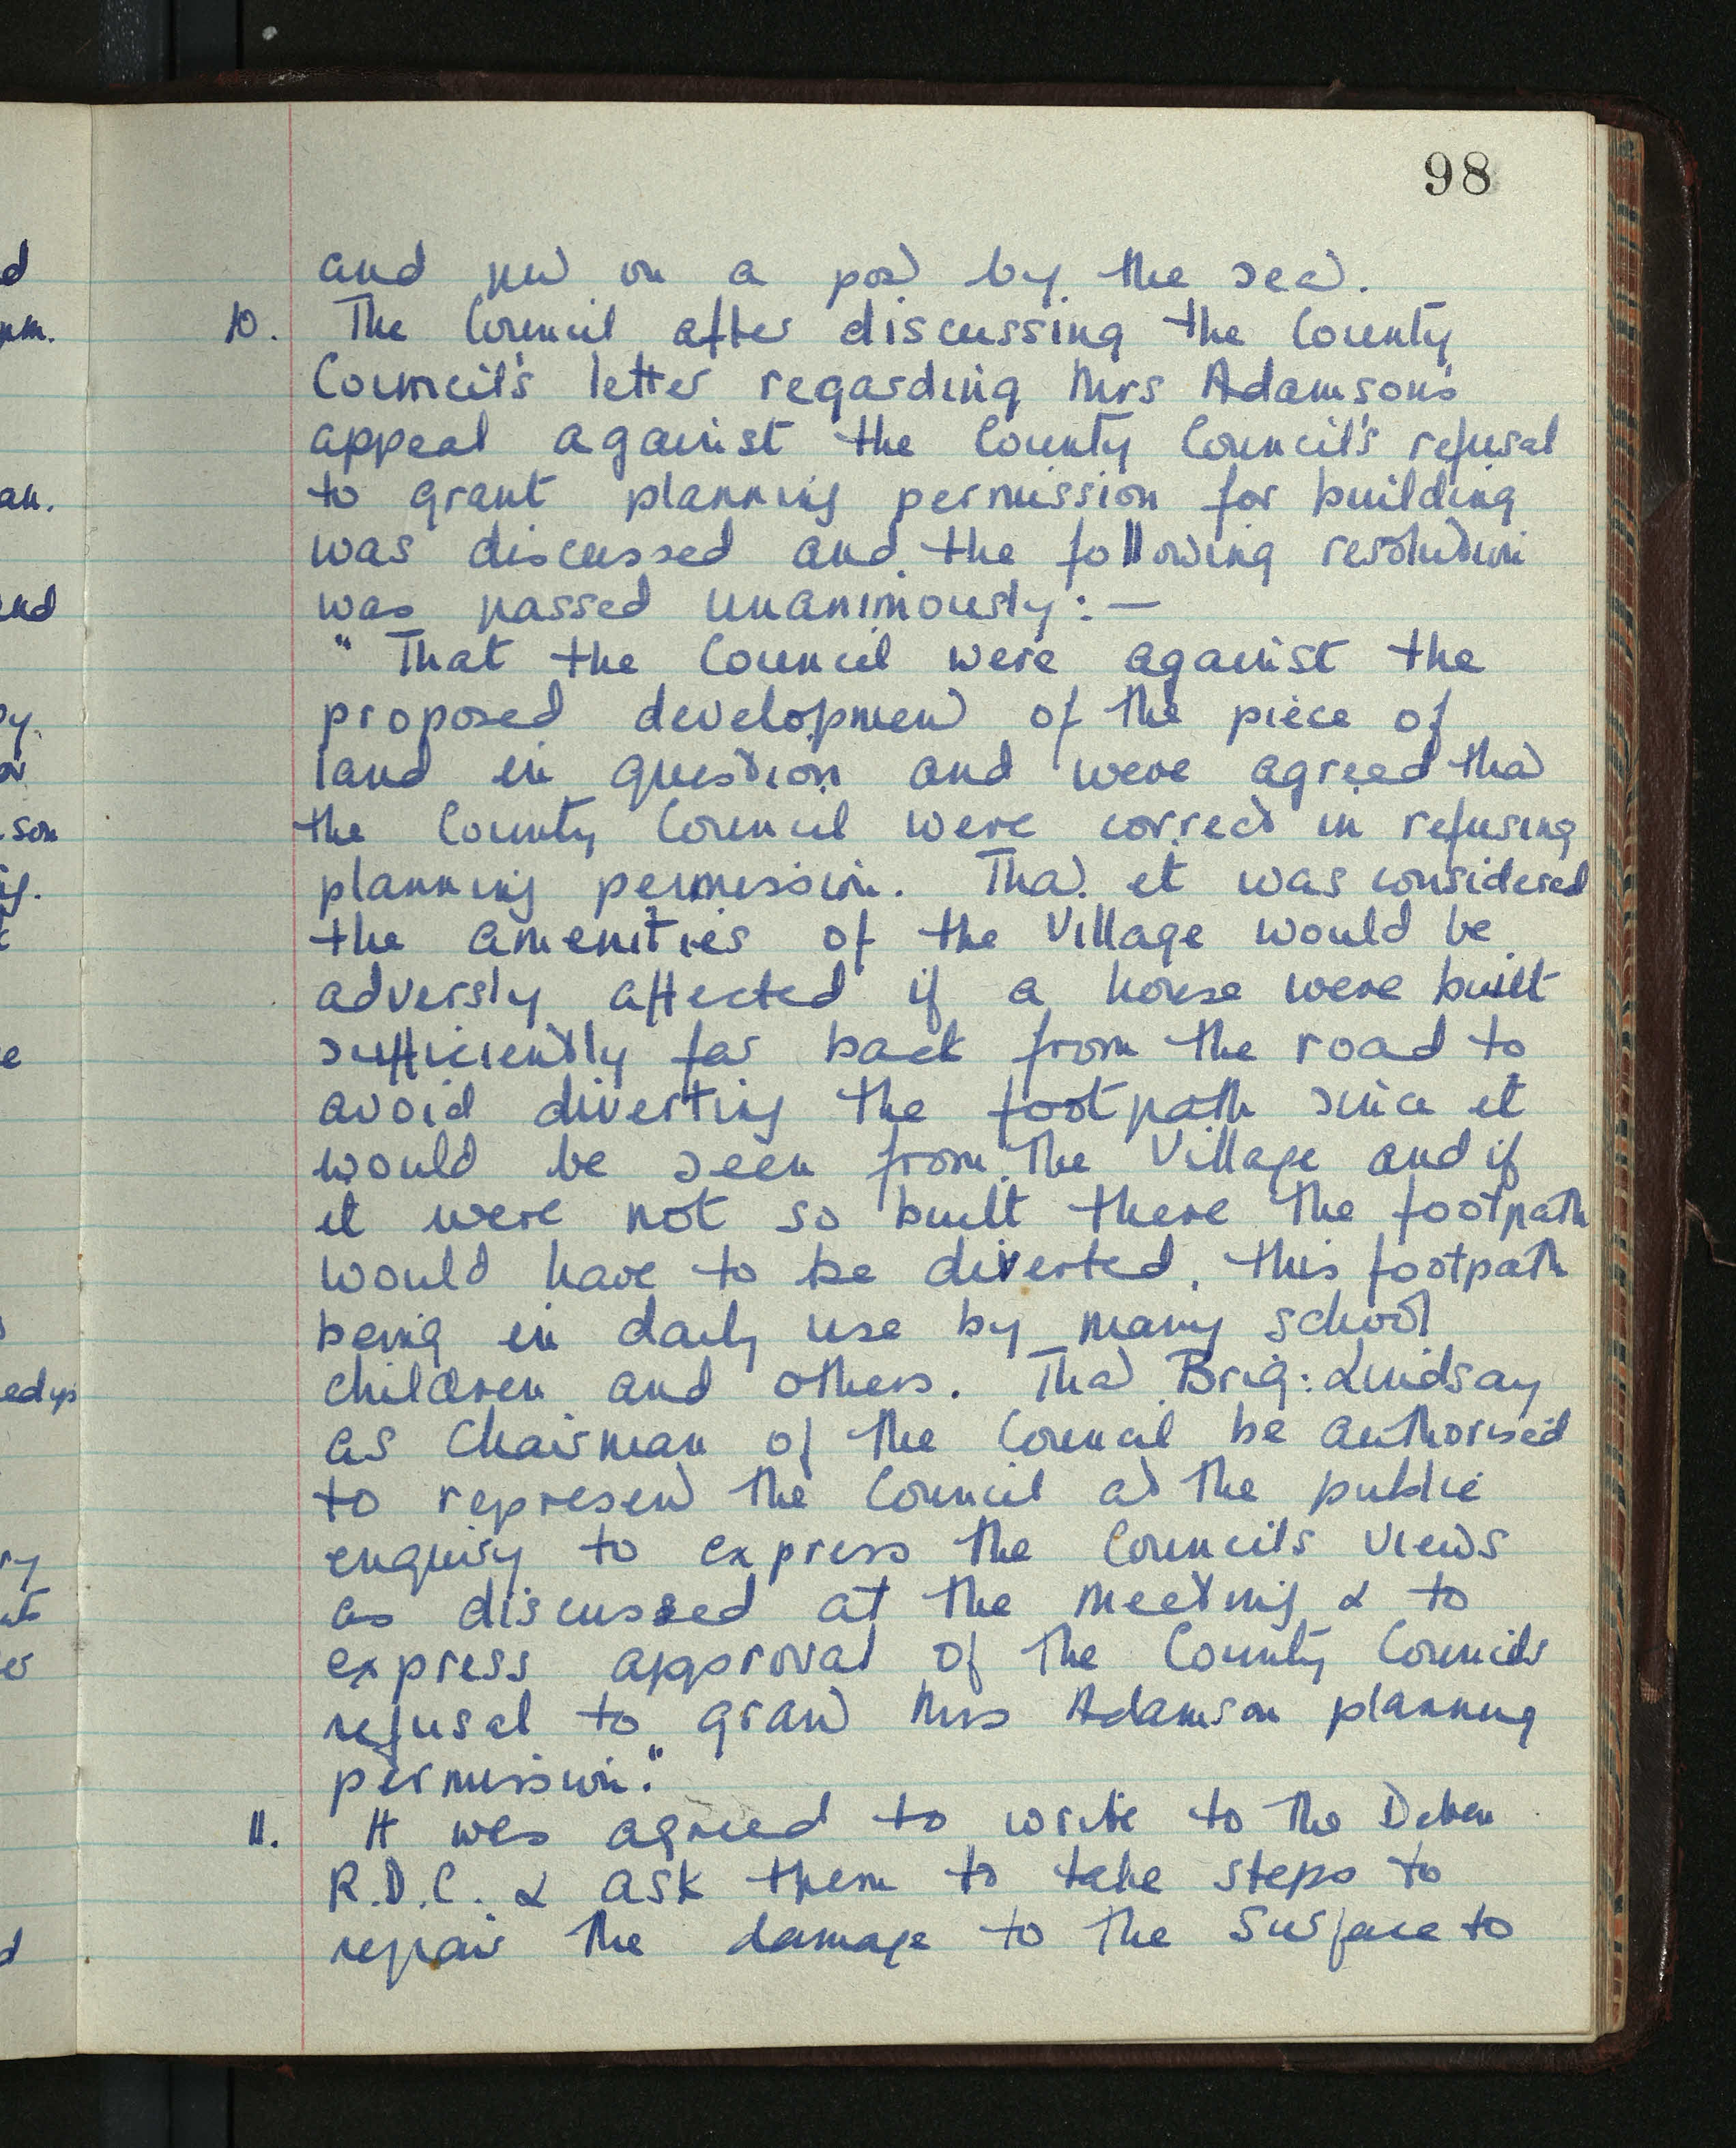 98
and put on a post by the seat.
10. The Council after discussing the County
Council's letter regarding Mrs Adamson's
appeal against the County Council's refusal
to grant planning permission for building
was discussed and the following resolution
was passed unanimously: —
" That the Council were against the
proposed development of the piece of
land in question and were agreed that
the County Council were correct in refusing
planning permission. That it was considered
the amenities of the Village would be
adversly affected if a house were built
sufficiently far back from the road to
avoid diverting the footpath since it
would be seen from the Village and if
it were not so built there the footpath
would have to be diverted, this footpath
being in daily use by many school
children and others. That Brig: Lindsay
as Chairman of the Council be authorised
to represent the Council at the public
enquiry to express the Councils views
as discussed at the meeting & to
express approval of the County Councils
refusal to grant Mrs Adamson planning
permission."
11. It was agreed to write to the Deben
R.D.C. & ask them to take steps to
repair the damage to the surface to